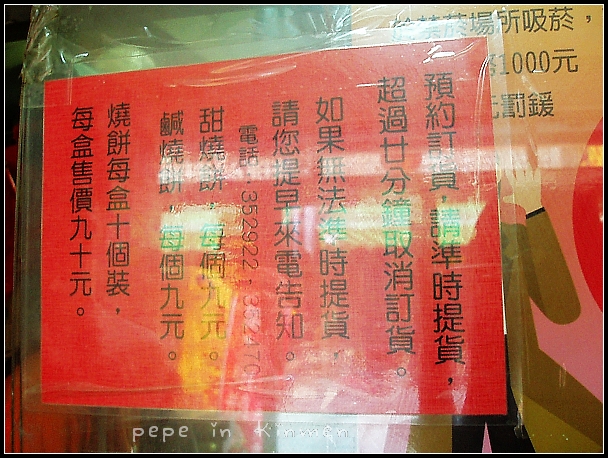 預約訂貨，請準時提貨，
超過廿分鐘取消訂貨。
如果無法準時提貨，
請您提早來電告知。
電話：352922；
甜燒餅，每個九元。
鹹燒餅，每個九元。
燒餅每盒十個裝，
每盒售價九十元。
菸場所吸菸，
1000元
元罰鍰
pepe in Kinmen